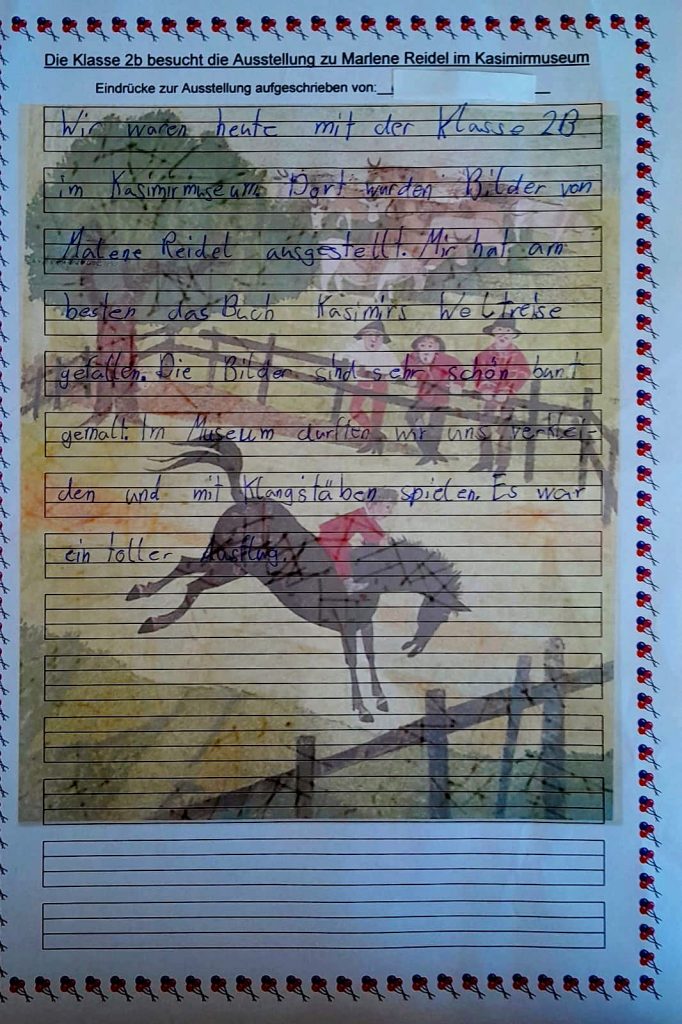 Die Klasse 2b besucht die Ausstellung zu Marlene Reidel im Kasimirmuseum
Eindrücke zur Ausstellung aufgeschrieben von:
Wir waren heute mit der Klasse 2B
im Kasimirmuseum. Dort wurden Bilder von
Malene Reidel ausgestellt. Mir hat am
besten das Buch Kasimirs Weltreise
gefallen. Die Bilder sind sehr schön bunt
gemalt. Im Museum durften wir uns verklei-
den und mit Klangstäben spielen. Es war
ein toller Ausflug.